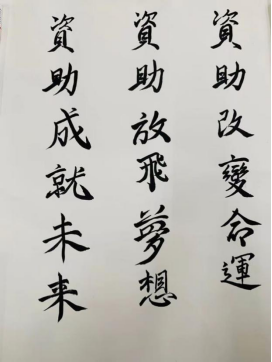 資助改變命運
資助放飛夢想
資助成就未来